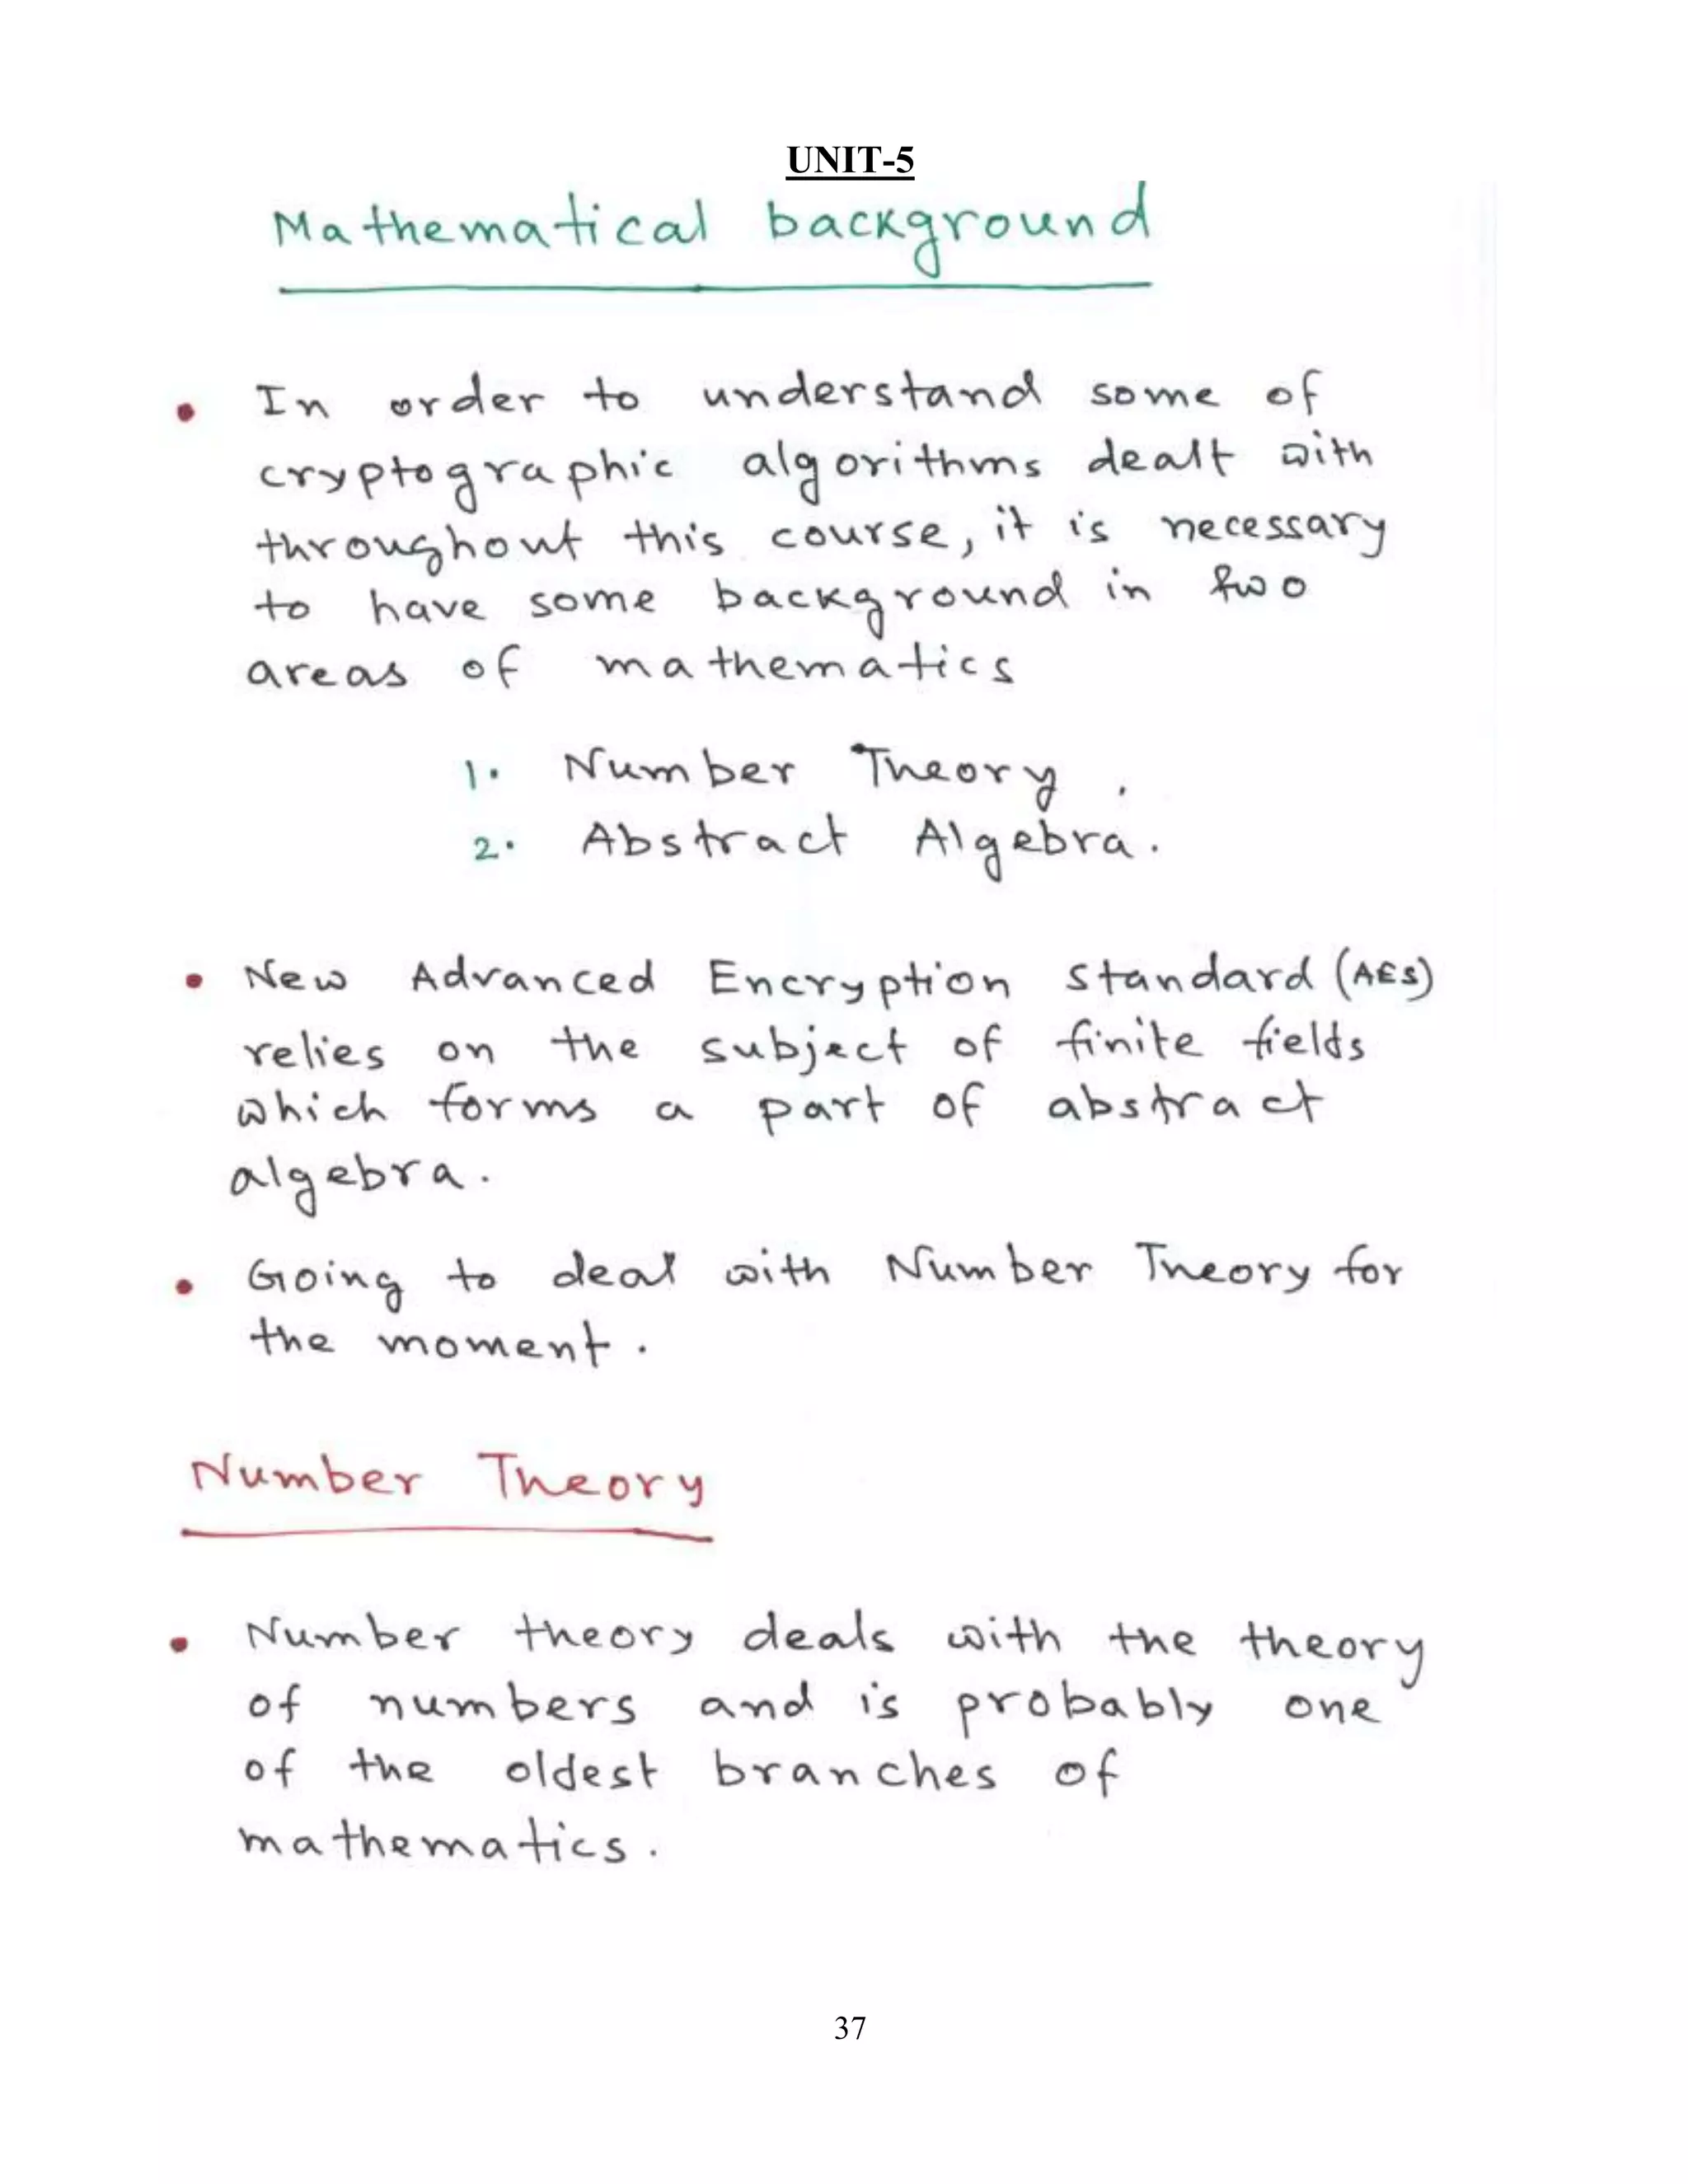 UNIT-5
Mathematical background
• In order to understand some of
cryptographic algorithms dealt with
throughout this course, it is necessary
to have some background in two
areas of mathematics
1. Number Theory.
2. Abstract Algebra.
• New Advanced Encryption Standard (AES)
relies on the subject of finite fields
which forms a part of abstract
algebra.
• Going to deal with Number Theory for
the moment.
Number Theory
• Number theory deals with the theory
of numbers and is probably one
of the oldest branches of
mathematics.
37